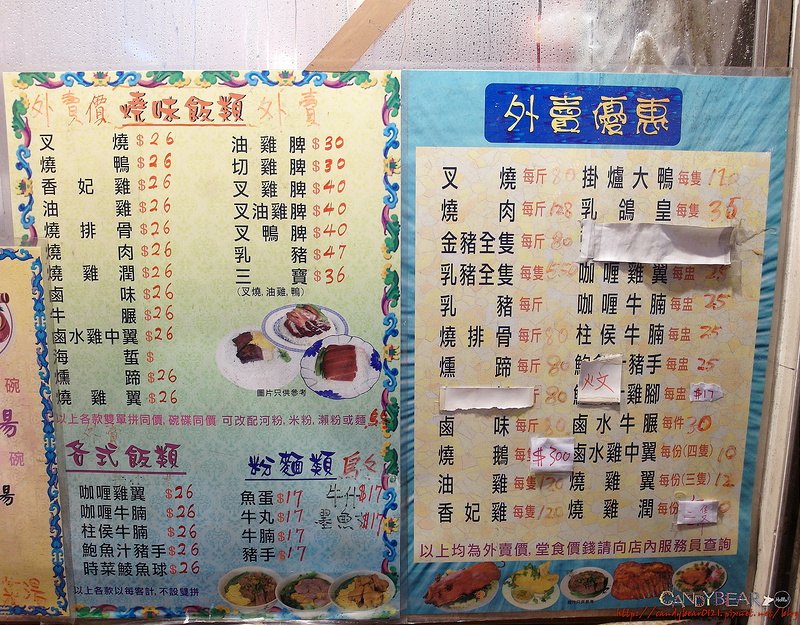 外賣價 燒味飯類 外賣
叉燒 $26
燒鴨 $26
香妃雞 $26
油雞 $26
燒排骨 $26
燒肉 $26
燒雞潤 $26
鹵味 $26
牛𦟌 $26
鹵水雞中翼 $26
海蜇 $
燻蹄 $26
燒雞翼 $26
油雞脾 $30
切雞脾 $30
叉雞脾 $40
叉油雞脾 $40
叉鴨脾 $40
乳豬 $47
三寶 $36
(叉燒, 油雞, 鴨)
圖片只供參考
以上各款雙單拼同價, 碗碟同價 可改配河粉, 米粉, 瀨粉或麵
各式飯類
咖喱雞翼 $26
咖喱牛腩 $26
柱侯牛腩 $26
鮑魚汁豬手 $26
時菜鯪魚球 $26
以上各款以每客計, 不設雙拼
粉麵類
魚蛋 $17
牛丸 $17
牛腩 $17
豬手 $17
牛什 $17
墨魚 $17
碗
湯
碗
湯
外賣優惠
叉燒 每斤 80
燒肉 每斤 128
金豬全隻 每斤 80
乳豬全隻 每隻
乳豬 每斤
燒排骨 每斤 80
燻蹄 每斤 80
鹵味 每斤 80
燒鵝 每 $300
油雞 每隻 130
香妃雞 每隻 120
掛爐大鴨 每隻 120
乳鴿皇 每隻 36
咖喱雞翼 每盅 25
咖喱牛腩 每盅 25
柱侯牛腩 每盅 25
鮑 豬手 每盅 25
雞腳 每盅 $17
鹵水牛𦟌 每件 30
鹵水雞中翼 每份(四隻) 10
燒雞翼 每份(三隻) 12
燒雞潤 每份 二隻
以上均為外賣價, 堂食價錢請向店內服務員查詢
CANDYBEAR
http://candybear0121.pixnet.net/blog